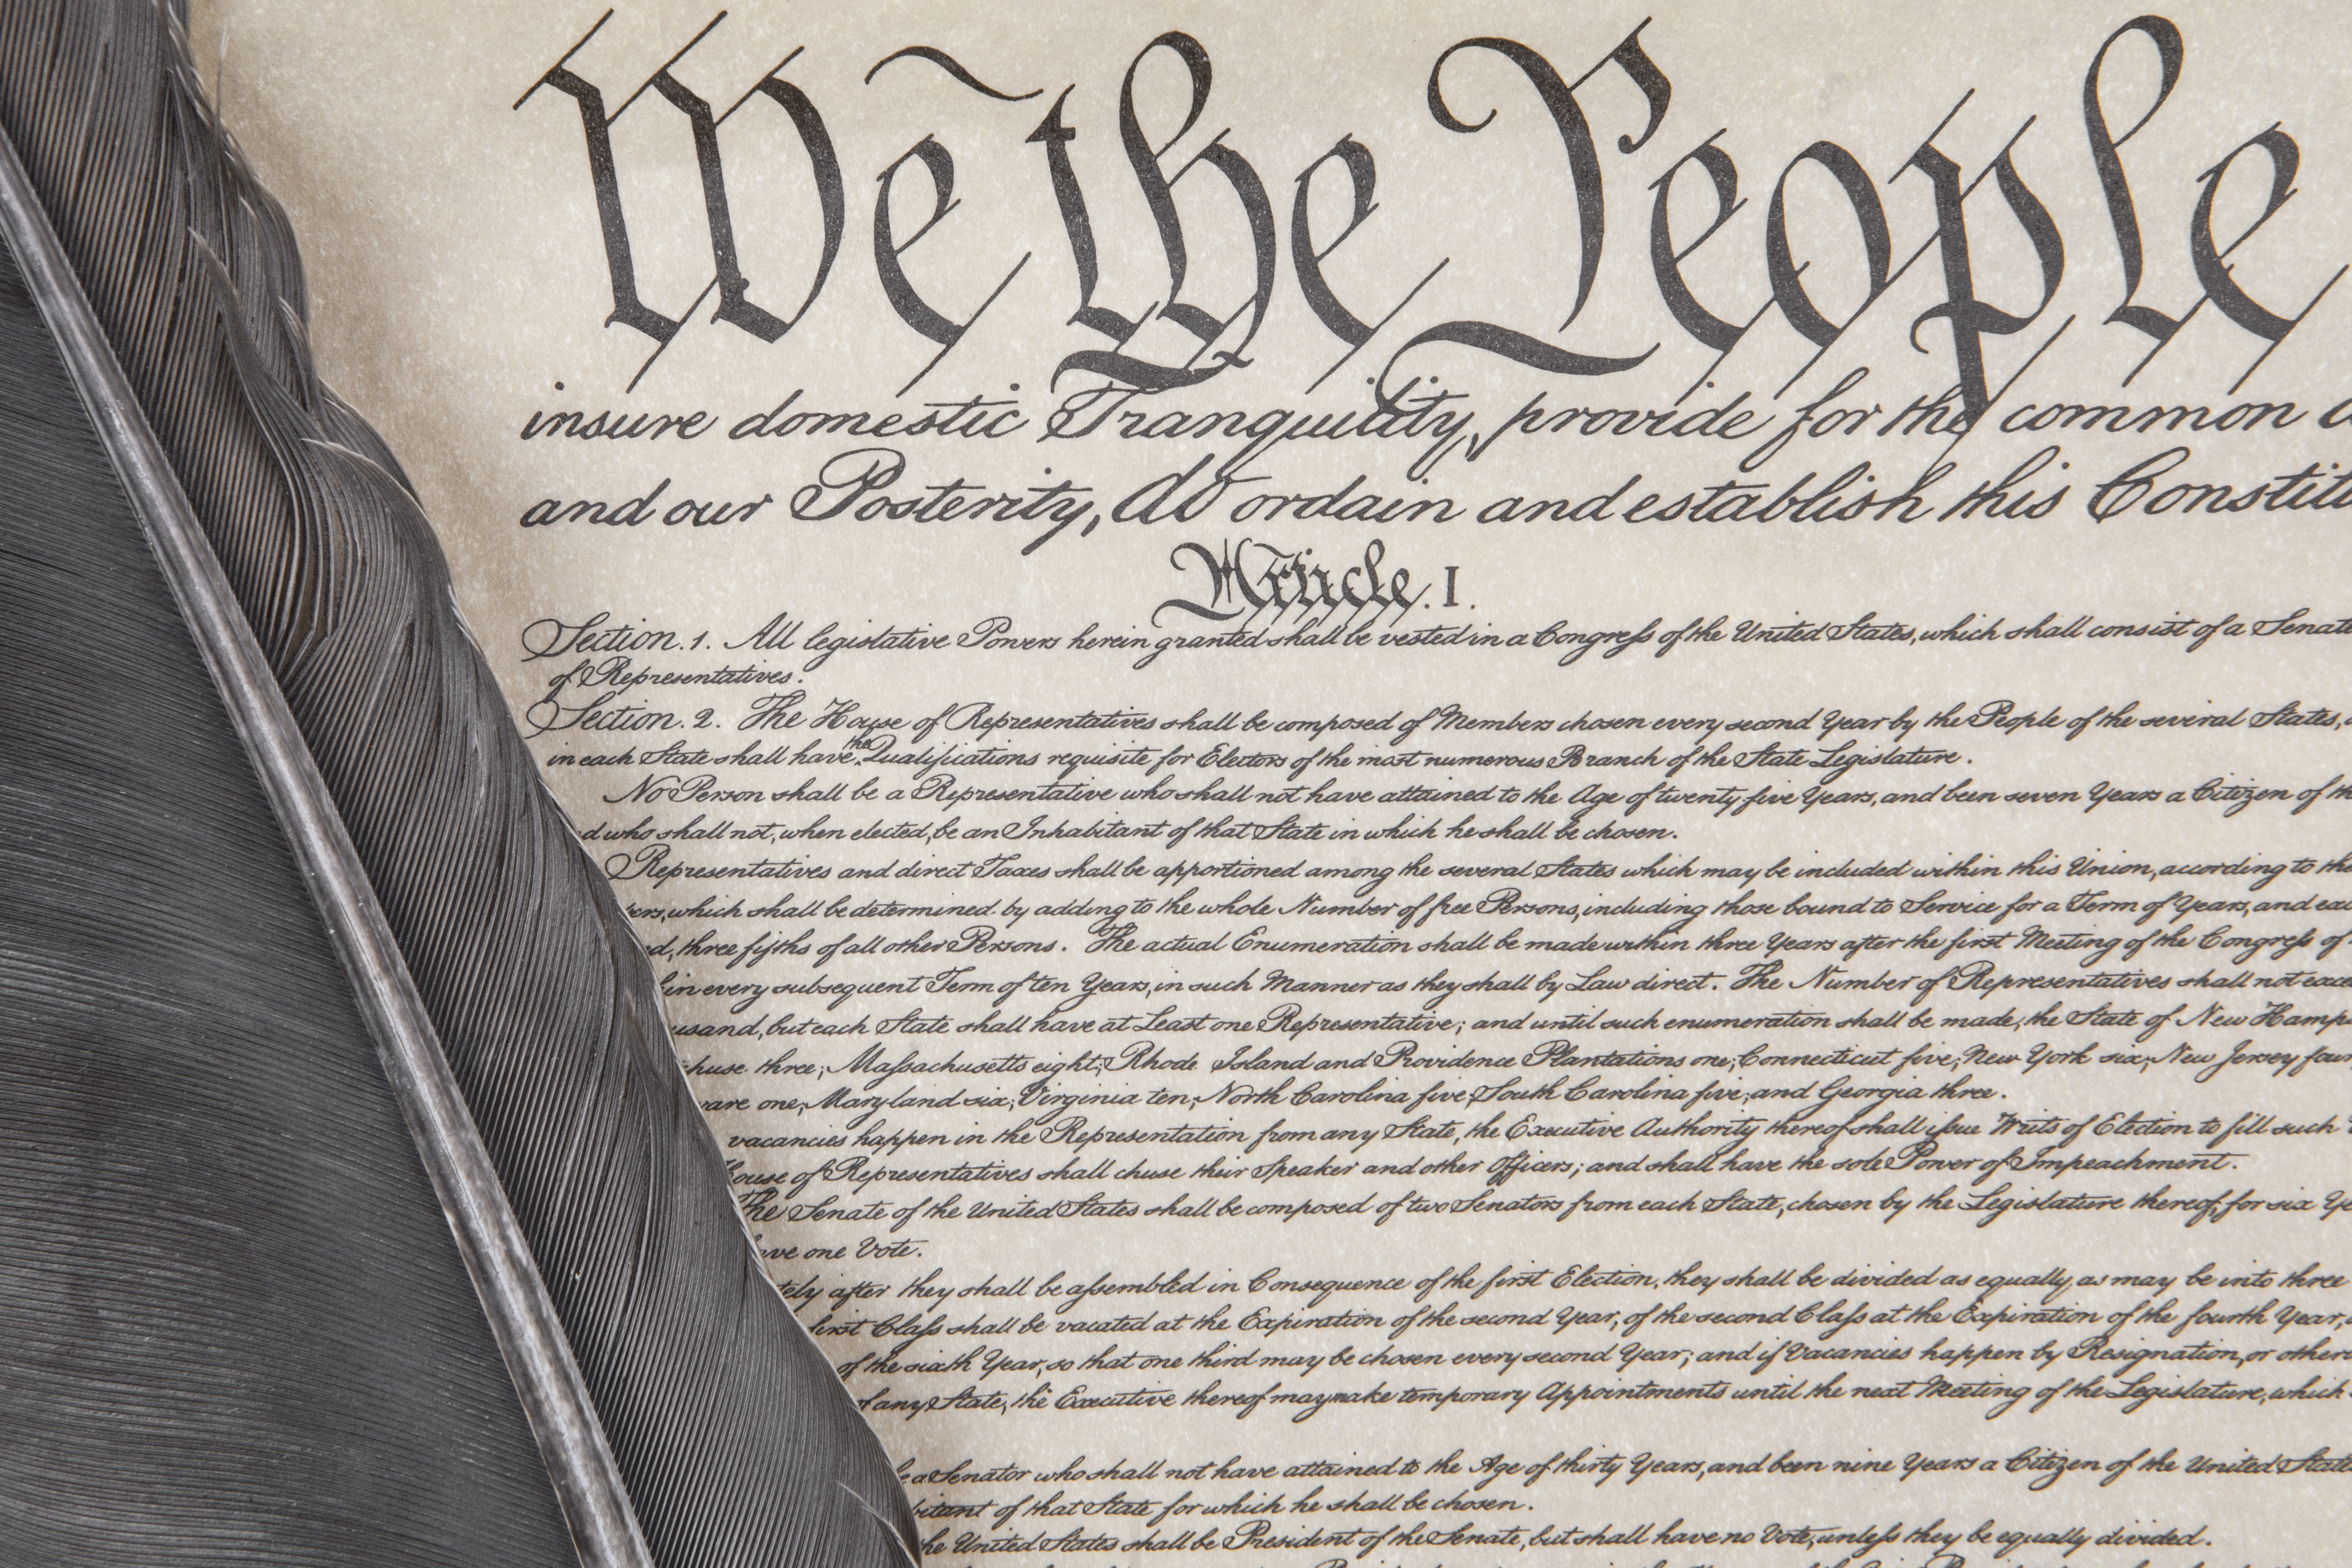 We the People
insure domestic Tranquility, provide for the common
and our Posterity, do ordain and establish this Constit
Article. I.
Section. 1. All legislative Powers herein granted shall be vested in a Congress of the United States, which shall consist of a Senate
of Representatives.
Section. 2. The House of Representatives shall be composed of Members chosen every second Year by the People of the several States,
in each State shall have the Qualifications requisite for Electors of the most numerous Branch of the State Legislature.
No Person shall be a Representative who shall not have attained to the Age of twenty five Years, and been seven Years a Citizen of th
d who shall not, when elected, be an Inhabitant of that State in which he shall be chosen.
Representatives and direct Taxes shall be apportioned among the several States which may be included within this Union, according to the
bers, which shall be determined by adding to the whole Number of free Persons, including those bound to Service for a Term of Years, and
ed, three fifths of all other Persons. The actual Enumeration shall be made within three Years after the first Meeting of the Congress of
in every subsequent Term of ten Years, in such Manner as they shall by Law direct. The Number of Representatives shall not exce
usand, but each State shall have at Least one Representative; and until such enumeration shall be made, the State of New Hamp
chuse three, Massachusetts eight, Rhode Island and Providence Plantations one, Connecticut five, New York six, New Jersey four
ware one, Maryland six, Virginia ten, North Carolina five, South Carolina five, and Georgia three.
vacancies happen in the Representation from any State, the Executive Authority thereof shall issue Writs of Election to fill such
House of Representatives shall chuse their Speaker and other Officers; and shall have the sole Power of Impeachment.
The Senate of the United States shall be composed of two Senators from each State, chosen by the Legislature thereof, for six Ye
have one Vote.
tely after they shall be assembled in Consequence of the first Election, they shall be divided as equally as may be into three
first Class shall be vacated at the Expiration of the second Year, of the second Class at the Expiration of the fourth Year,
of the sixth Year, so that one third may be chosen every second Year; and if Vacancies happen by Resignation, or other
of any State, the Executive thereof may make temporary Appointments until the next Meeting of the Legislature, which
be a Senator who shall not have attained to the Age of thirty Years, and been nine Years a Citizen of the United State
bitant of that State for which he shall be chosen.
the United States shall be President of the Senate, but shall have no Vote, unless they be equally divided.